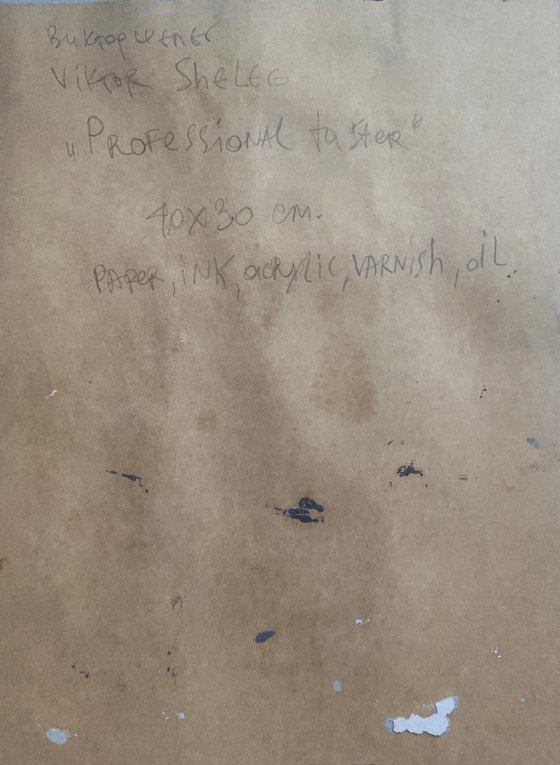 Виктор Шелег
VIKTOR SHELEG
„PROFESSIONAL taster“
40x30 cm.
PAPER, INK, acrylic, VARNISH, oIL.